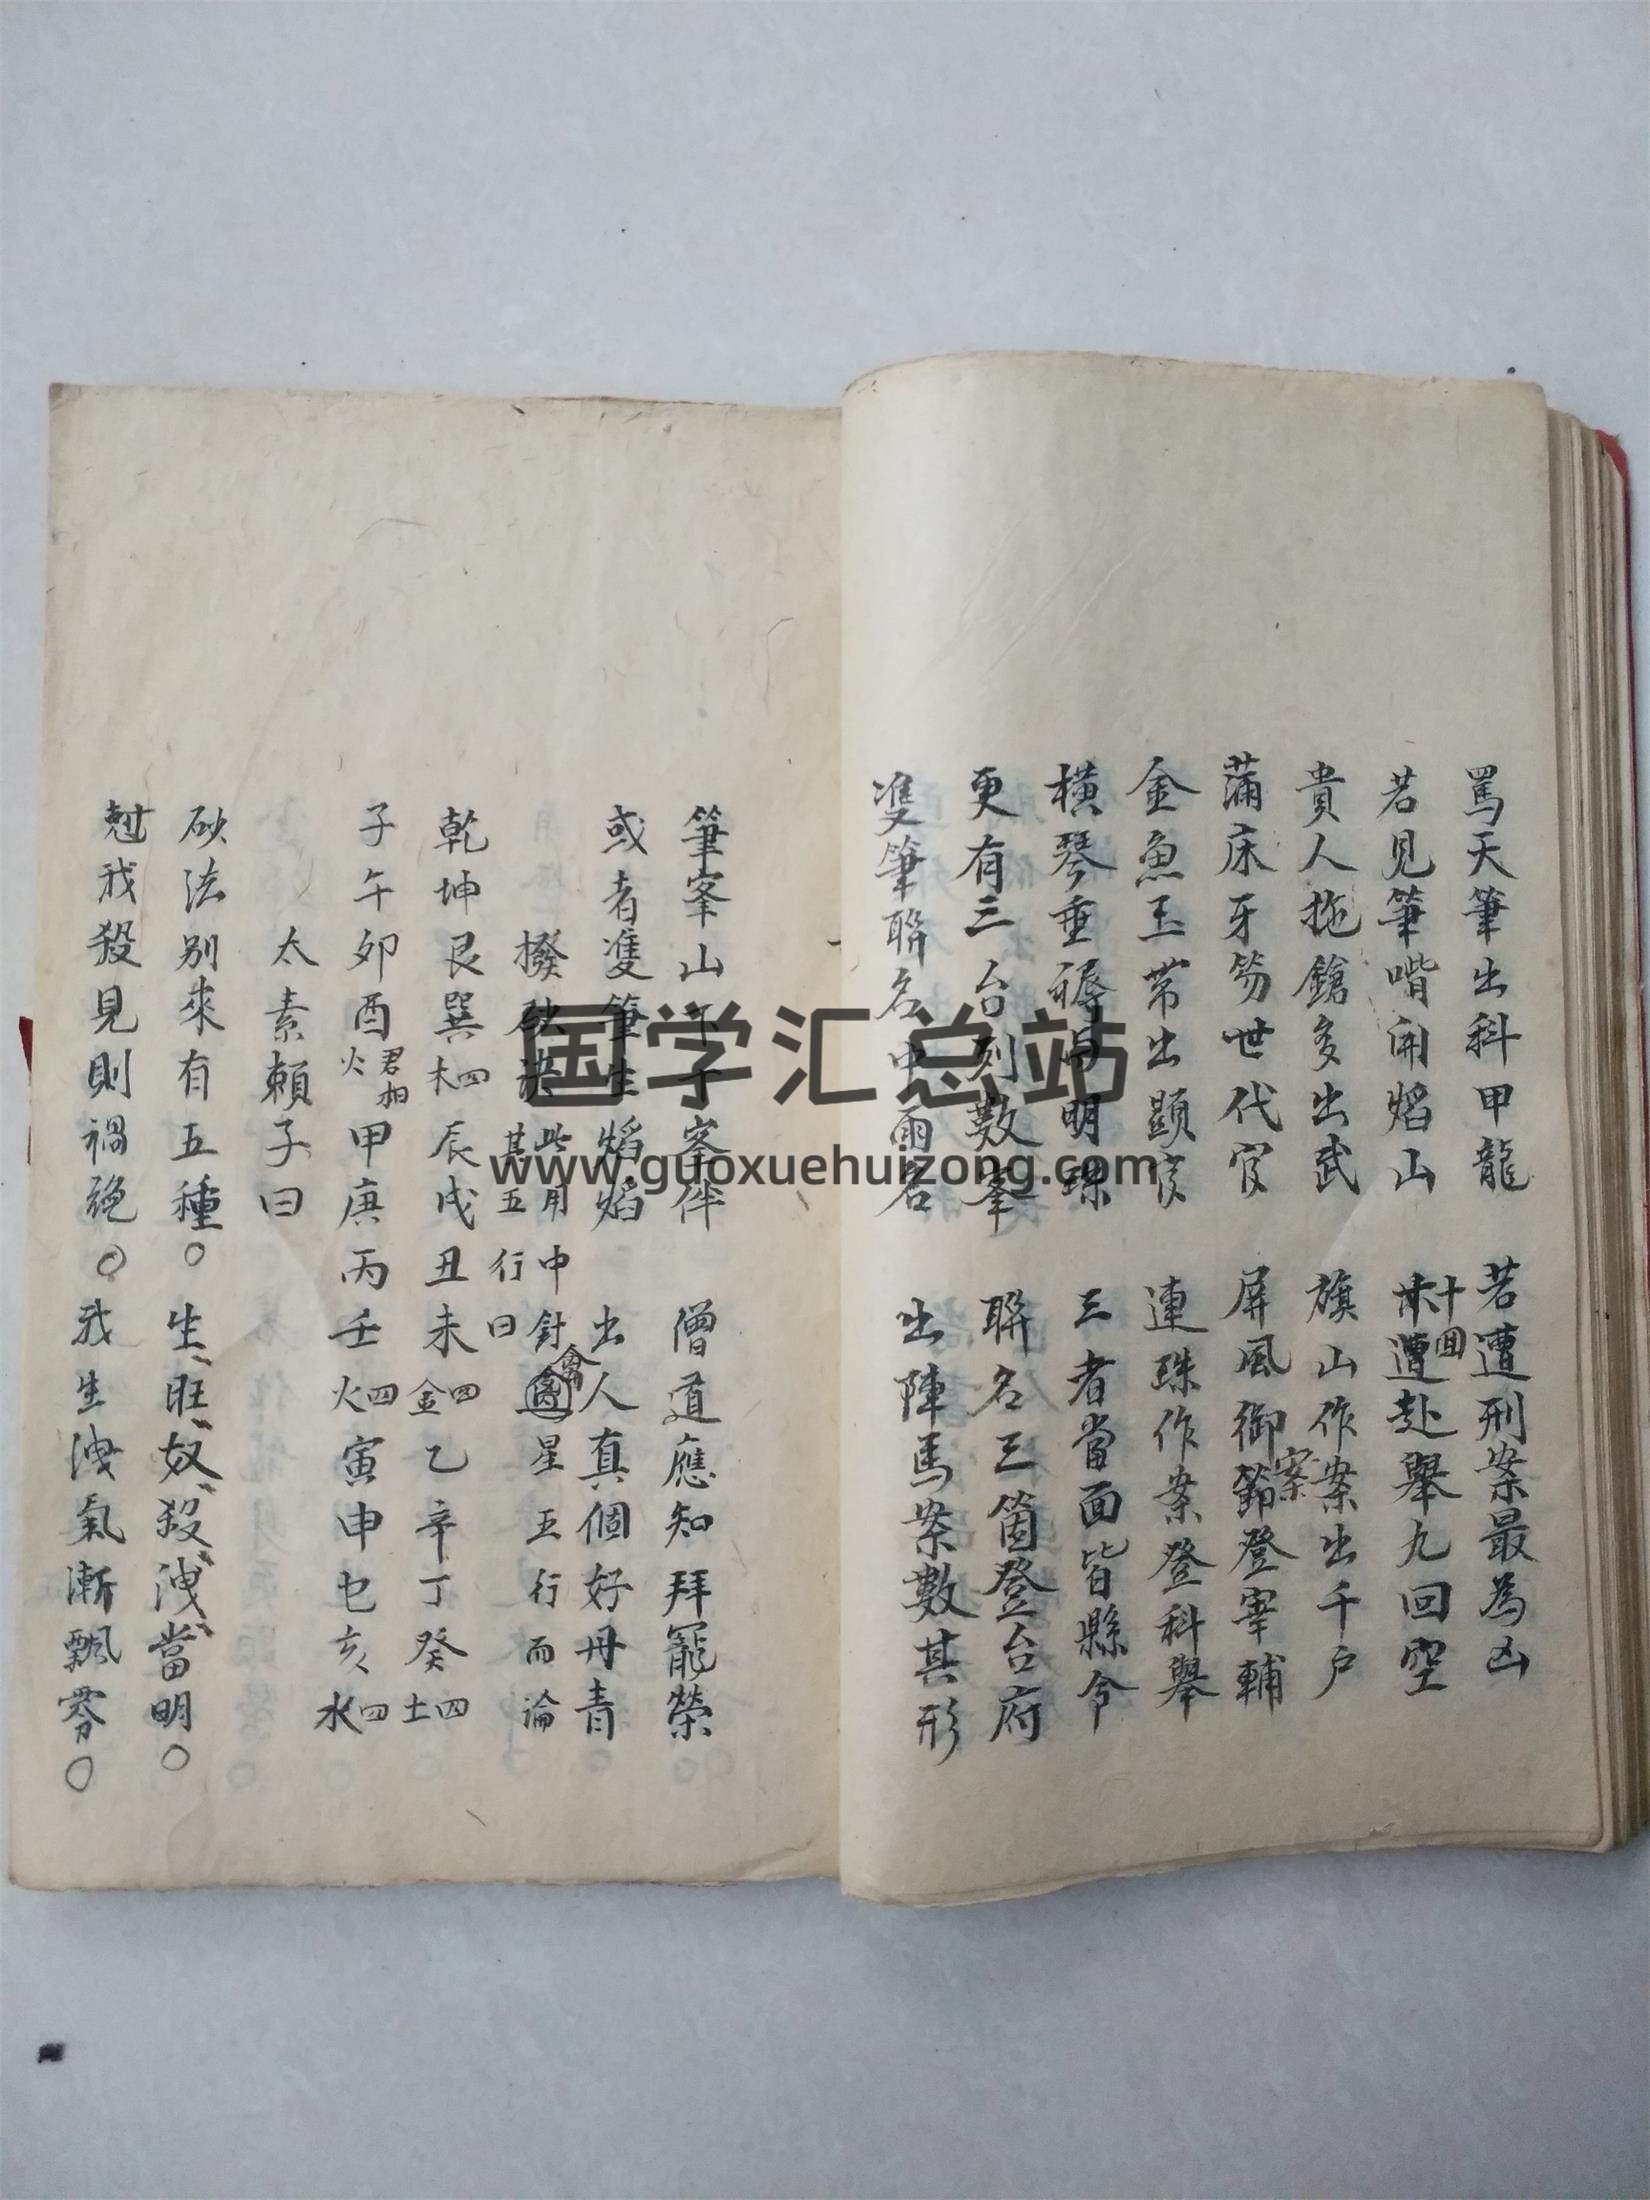 罵天筆出科甲龍　若遭刑案最為凶
若見筆嘴開焰山　十遭赴舉九回空
十回
貴人拖鎗多出武　旗山作案出千户
蒲床牙笏世代官　屏風御節登宰輔
案
金魚玉帶出顕官　連珠作案登科舉
橫琴垂 明珠　三者當面皆縣令
更有三台列數峯　聯名三箇登台府
雙筆聯名中兩名　出陣馬案數其形
筆峯山下 峯伴　僧道應知拜寵榮
或者雙筆生焰焰　出人真個好丹青
撥砂決　此用中針 星五行而論
禽
其五行曰
乾坤艮巽四木辰戌丑未四金乙辛丁癸四土
子午卯酉君相火甲庚丙壬四火寅申巳亥四水
太素賴子曰
砂法别來有五種。生、旺、奴、殺、洩、當明。
尅我殺見則禍絶。我生洩氣漸飄零。
国学汇总站
www.guoxuehuizong.com